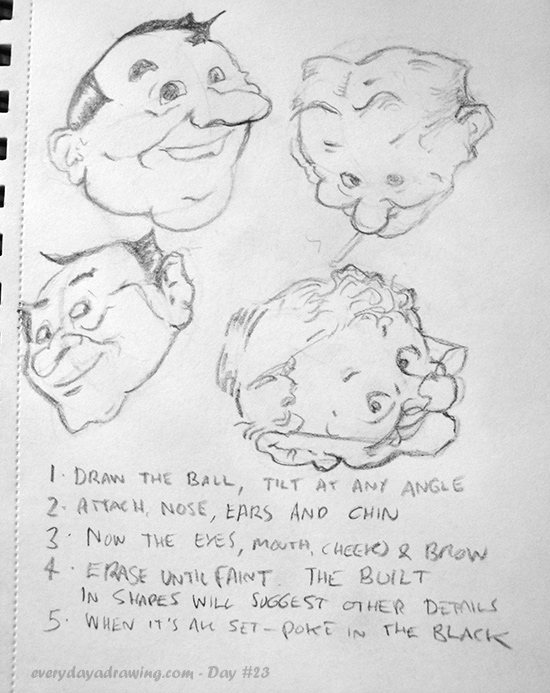 1. DRAW THE BALL, TILT AT ANY ANGLE
2. ATTACH, NOSE, EARS AND CHIN
3. NOW THE EYES, MOUTH, CHEEKS & BROW
4. ERASE UNTIL FAINT. THE BUILT
IN SHAPES WILL SUGGEST OTHER DETAILS
5. WHEN IT'S ALL SET - POKE IN THE BLACK
everydayadrawing.com - Day #23